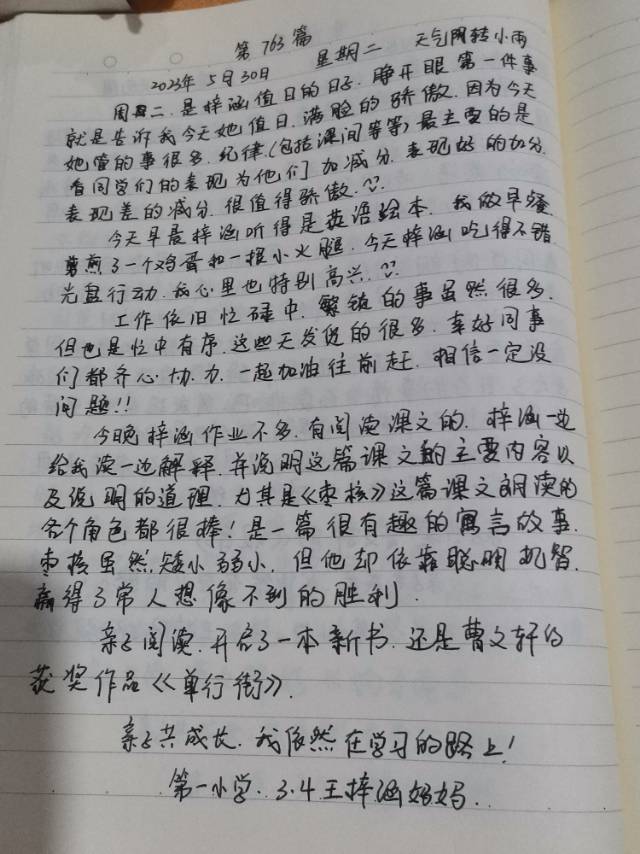 第763篇
2023年5月30日 星期二 天气阴转小雨
周二.是梓涵值日的日子.睁开眼第一件事
就是告诉我今天她值日.满脸的骄傲.因为今天
她管的事很多.纪律(包括课间等等)最主要的是
看同学们的表现为他们加减分.表现好的加分.
表现差的减分.很值得骄傲.
今天早晨梓涵听得是英语绘本.我做早餐.
煎了一个鸡蛋和一根小火腿.今天梓涵吃得不错
光盘行动.我心里也特别高兴.
工作依旧忙碌中.繁琐的事虽然很多.
但也是忙中有序.这些天发货的很多.幸好同事
们都齐心协力.一起加油往前赶.相信一定没
问题!!
今晚梓涵作业不多.有阅读课文的.梓涵一边
给我读一边解释.并说明这篇课文的主要内容以
及说明的道理.尤其是《枣核》这篇课文朗读的
各个角色都很棒!是一篇很有趣的寓言故事.
枣核虽然矮小弱小.但他却依靠聪明机智.
赢得了常人想像不到的胜利.
亲子阅读.开启了一本新书.还是曹文轩的
获奖作品《单行街》.
亲子共成长.我依然在学习的路上!
第一小学.3.4王梓涵妈妈.